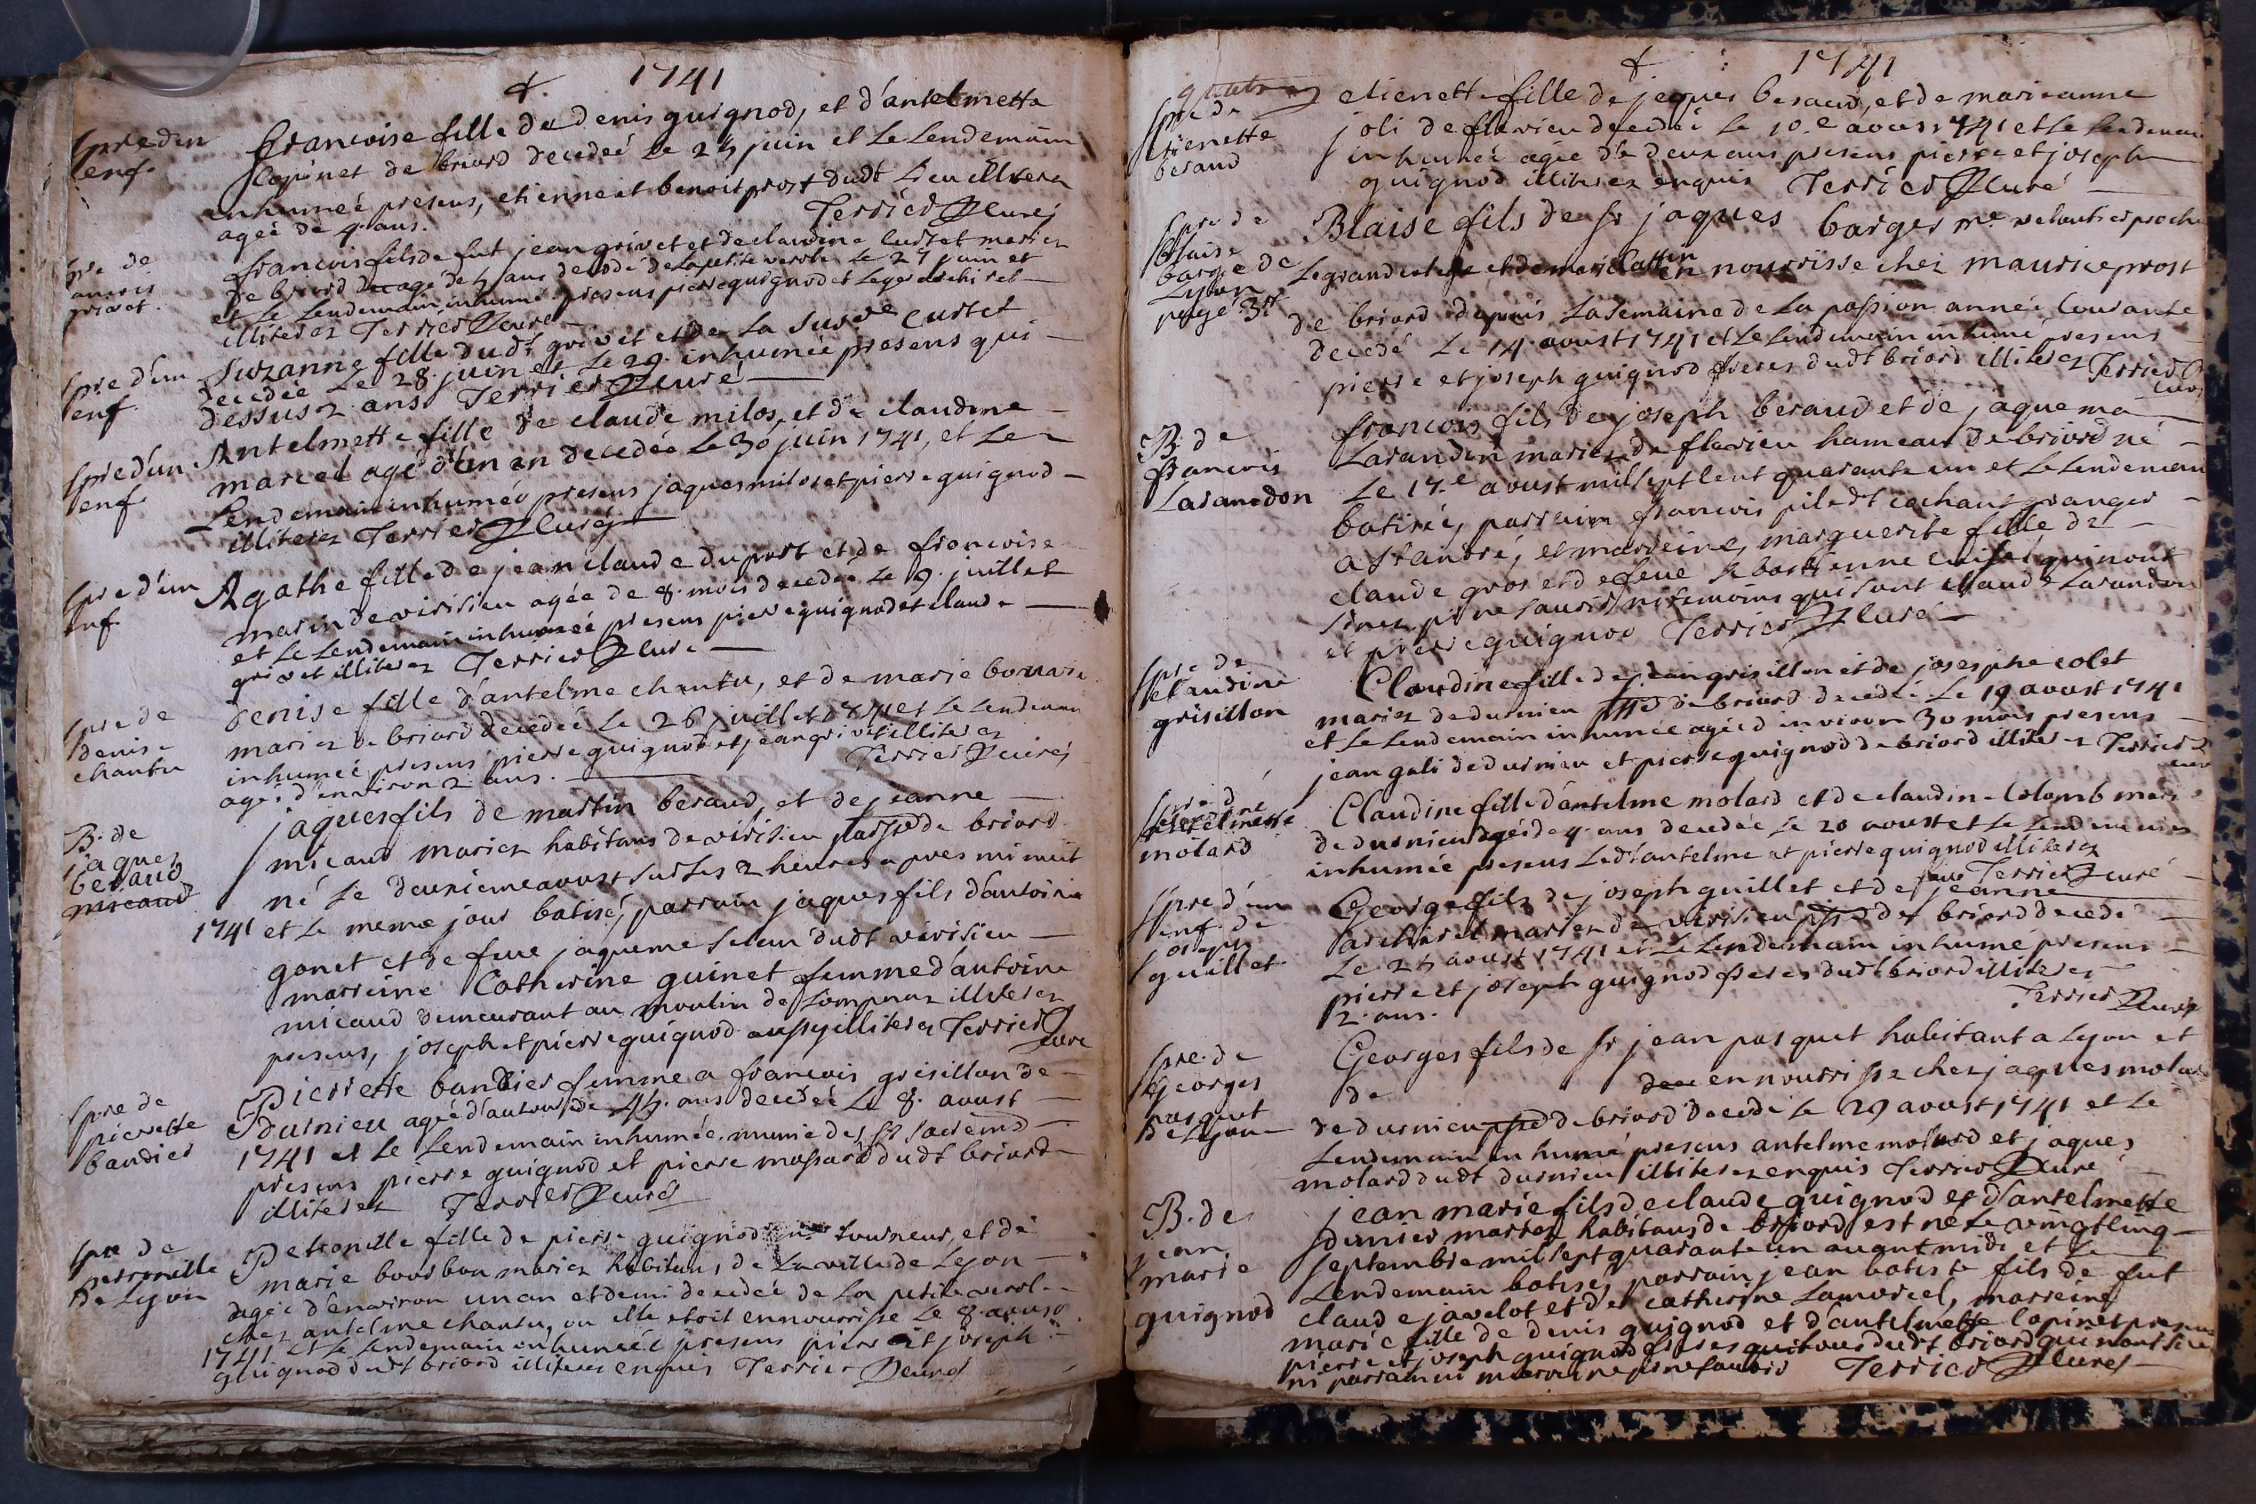 + 1741
spre d'un
enf.
francoise fille de denis guignod, et d'antelmette
Copinet de briord decedeé le 25 juin et le Lendemain
inhumeé presens, etienne et benoit prost dudt Lieu illiterez
ageé de 4. ans. Terrier Curé
spre de
francois
grivet.
francois fils de fut jean grivet et de claudine curtet mariez
de briord agé de 5 ans decedé de la petite verole le 27 juin et
et le Lendemain inhumé presens pierre guignod et Leger archirel
illiterez Terrier Curé
spre d'un
enf.
Suzanne fille dudt grivet et de La Susde Curtet
decedée Le 28. juin et Le 29. inhumée presens qui
dessus 2 ans Terrier Curé
spre d'un
enf.
Antelmette fille de claude milos, et de claudine
marcel agé d'un an decedée Le 30 juin 1741, et Le
Lendemain inhumée presens jaques milos et pierre guignod
illiterez Terrier Curé
spre d'un
enf.
Agathe fille de jean claude duport et de francoise
marin de virisieu agée de 8. mois decedée Le 9. juillet
et Le Lendemain inhumeé presens pierre guignod et claude
grivet illiterez Terrier Curé
spre de
denise
chantu
denise fille d'antelme chantu, et de marie bonard
mariez de briord decedeé Le 26 juillet 1741 et Le Lendemain
inhumeé presens pierre guignod et jean grivet illiterez
ageé d'environ 2 ans. Terrier Curé
B. de
jaques
beraud
micaud
jaques fils de martin beraud, et de jeanne
micaud mariez habitans de virisieu parsse de briord
né Le deuxieme aoust sur Les 2 heures apres minuit
1741 et Le meme jour batisé, parrain jaques fils d'antoine
gonet et de feue jaqueme selun dudt virisieu
marreine Catherine guinet femme d'antoine
micaud demeurant au moulin de Lompnaz illiterez
presens, joseph et pierre guignod aussy illiterez Terrier
Curé
spre de
pierrette
bandier
Pierrette bandier femme a francois grisillon de
durnieu ageé d'autour de 45. ans decedeé Le 8. aoust
1741 et Le Lendemain inhumée munie des sts sacremts
presens pierre guignod et pierre massard dudt briord
illiterez Terrier Curé
spre de
petronille
de Lyon
Petronille fille de pierre guignod me tourneur, et de
marie bourbon mariez habitans de La ville de Lyon
agée d'environ un an et demi decedeé de La petite verole
chez antelme chantu, ou elle etoit en nourrisse Le 8. aoust
1741 et Le Lendemain inhumeé presens pierre et joseph
guignod dudt briord illiterez enquis Terrier Curé
+ 1741
spre de
etienette
beraud
etienette fille de jaques beraud, et de marieanne
joli de flavieu decedeé Le 10.e aoust 1741 et Le Lendemain
inhumeé agée de deux ans presens pierre et joseph
guignod illiterez enquis Terrier Curé
spre de
blaise
barge de
Lyon
payé 3tt
Blaise fils de sr jaques barges me veloutier proche
Le grand et de marie en nourrisse chez maurice prost
de briord depuis La semaine de La passion anneé Courante
decedé Le 14 aoust 1741 et Le Lendemain inhumé presens
pierre et joseph guignod freres dudt briord illiterez Terrier
Curé
B. de
francois
Larandon
francois fils de joseph beraud et de jaquema
Larandon mariez de flavieu hameau de briord né
Le 17.e aoust mil sept cent quarante un et Le Lendemain
batisé, parrain francois pilodt granger
a st andré, et marreine, marguerite fille de
claude gros et de feue qui n'ont
siner pr ne sauoir ni temoins qui sont claude Larandon
et pierre guignod Terrier Curé
spre de
claudine
grisillon
Claudine fille de jean grisillon et de josephe colet
mariez de durnieu psse de briord decedée Le 19 aoust 1741
et Le Lendemain inhumée agée d'environ 30 mois presens
jean gali de durnieu et pierre guignod de briord illiterez Terrier
Curé
molard
Claudine fille d'antelme molard et de claudine Colomb mariez
de durnieu agée de 4. ans decedée Le 20 aoust et Le Lendemain
inhumée presens Ledt antelme et pierre guignod illiterez
Terrier Curé
spre d'un
enf. de
joseph
guillet
George fils de joseph guillet et de feue jeanne
archirel mariez de virisieu psse de briord decedé
Le 25 aoust 1741 et Le Lendemain inhumé presens
pierre et joseph guignod freres dudt briord illiterez
2. ans. Terrier Curé
spre. de
Georges
pasquet
de Lyon
Georges fils de sr jean pasquet habitant a Lyon et
de en nourrisse chez jaques molard
de durnieu psse de briord decedé Le 29 aoust 1741 et Le
Lendemain inhumé presens antelme molard et jaques
molard dudt durnieu illiterez enquis Terrier Curé
B. de
jean
marie
guignod
jean marie fils de claude guignod et d'antelmette
durnier mariez habitans de briord, est né Le vingt cinq
septembre mil sept quarante un auant midi et Le
Lendemain batisé, parrain jean batiste fils de fut
claude javelot et de catherine Lamorcel, marreine
marie fille de denis guignod et d'antelmette Copinet presens
pierre et joseph guignod freres qui tous dudt briord qui n'ont siné
ni parrain ni marreine pr ne sauoir Terrier Curé